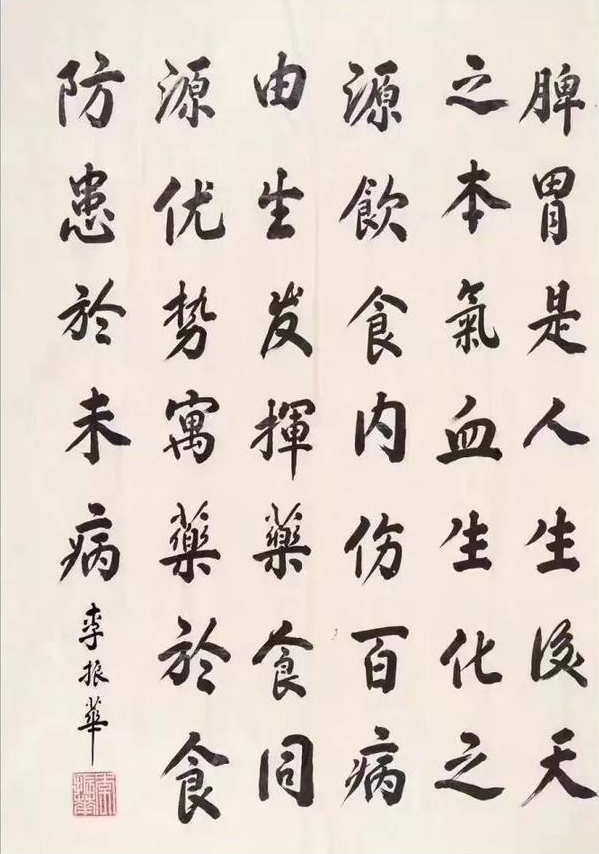 脾胃是人生後天
之本氣血生化之
源飲食内伤百病
由生发揮藥食同
源优势寓藥於食
防患於未病
李振華